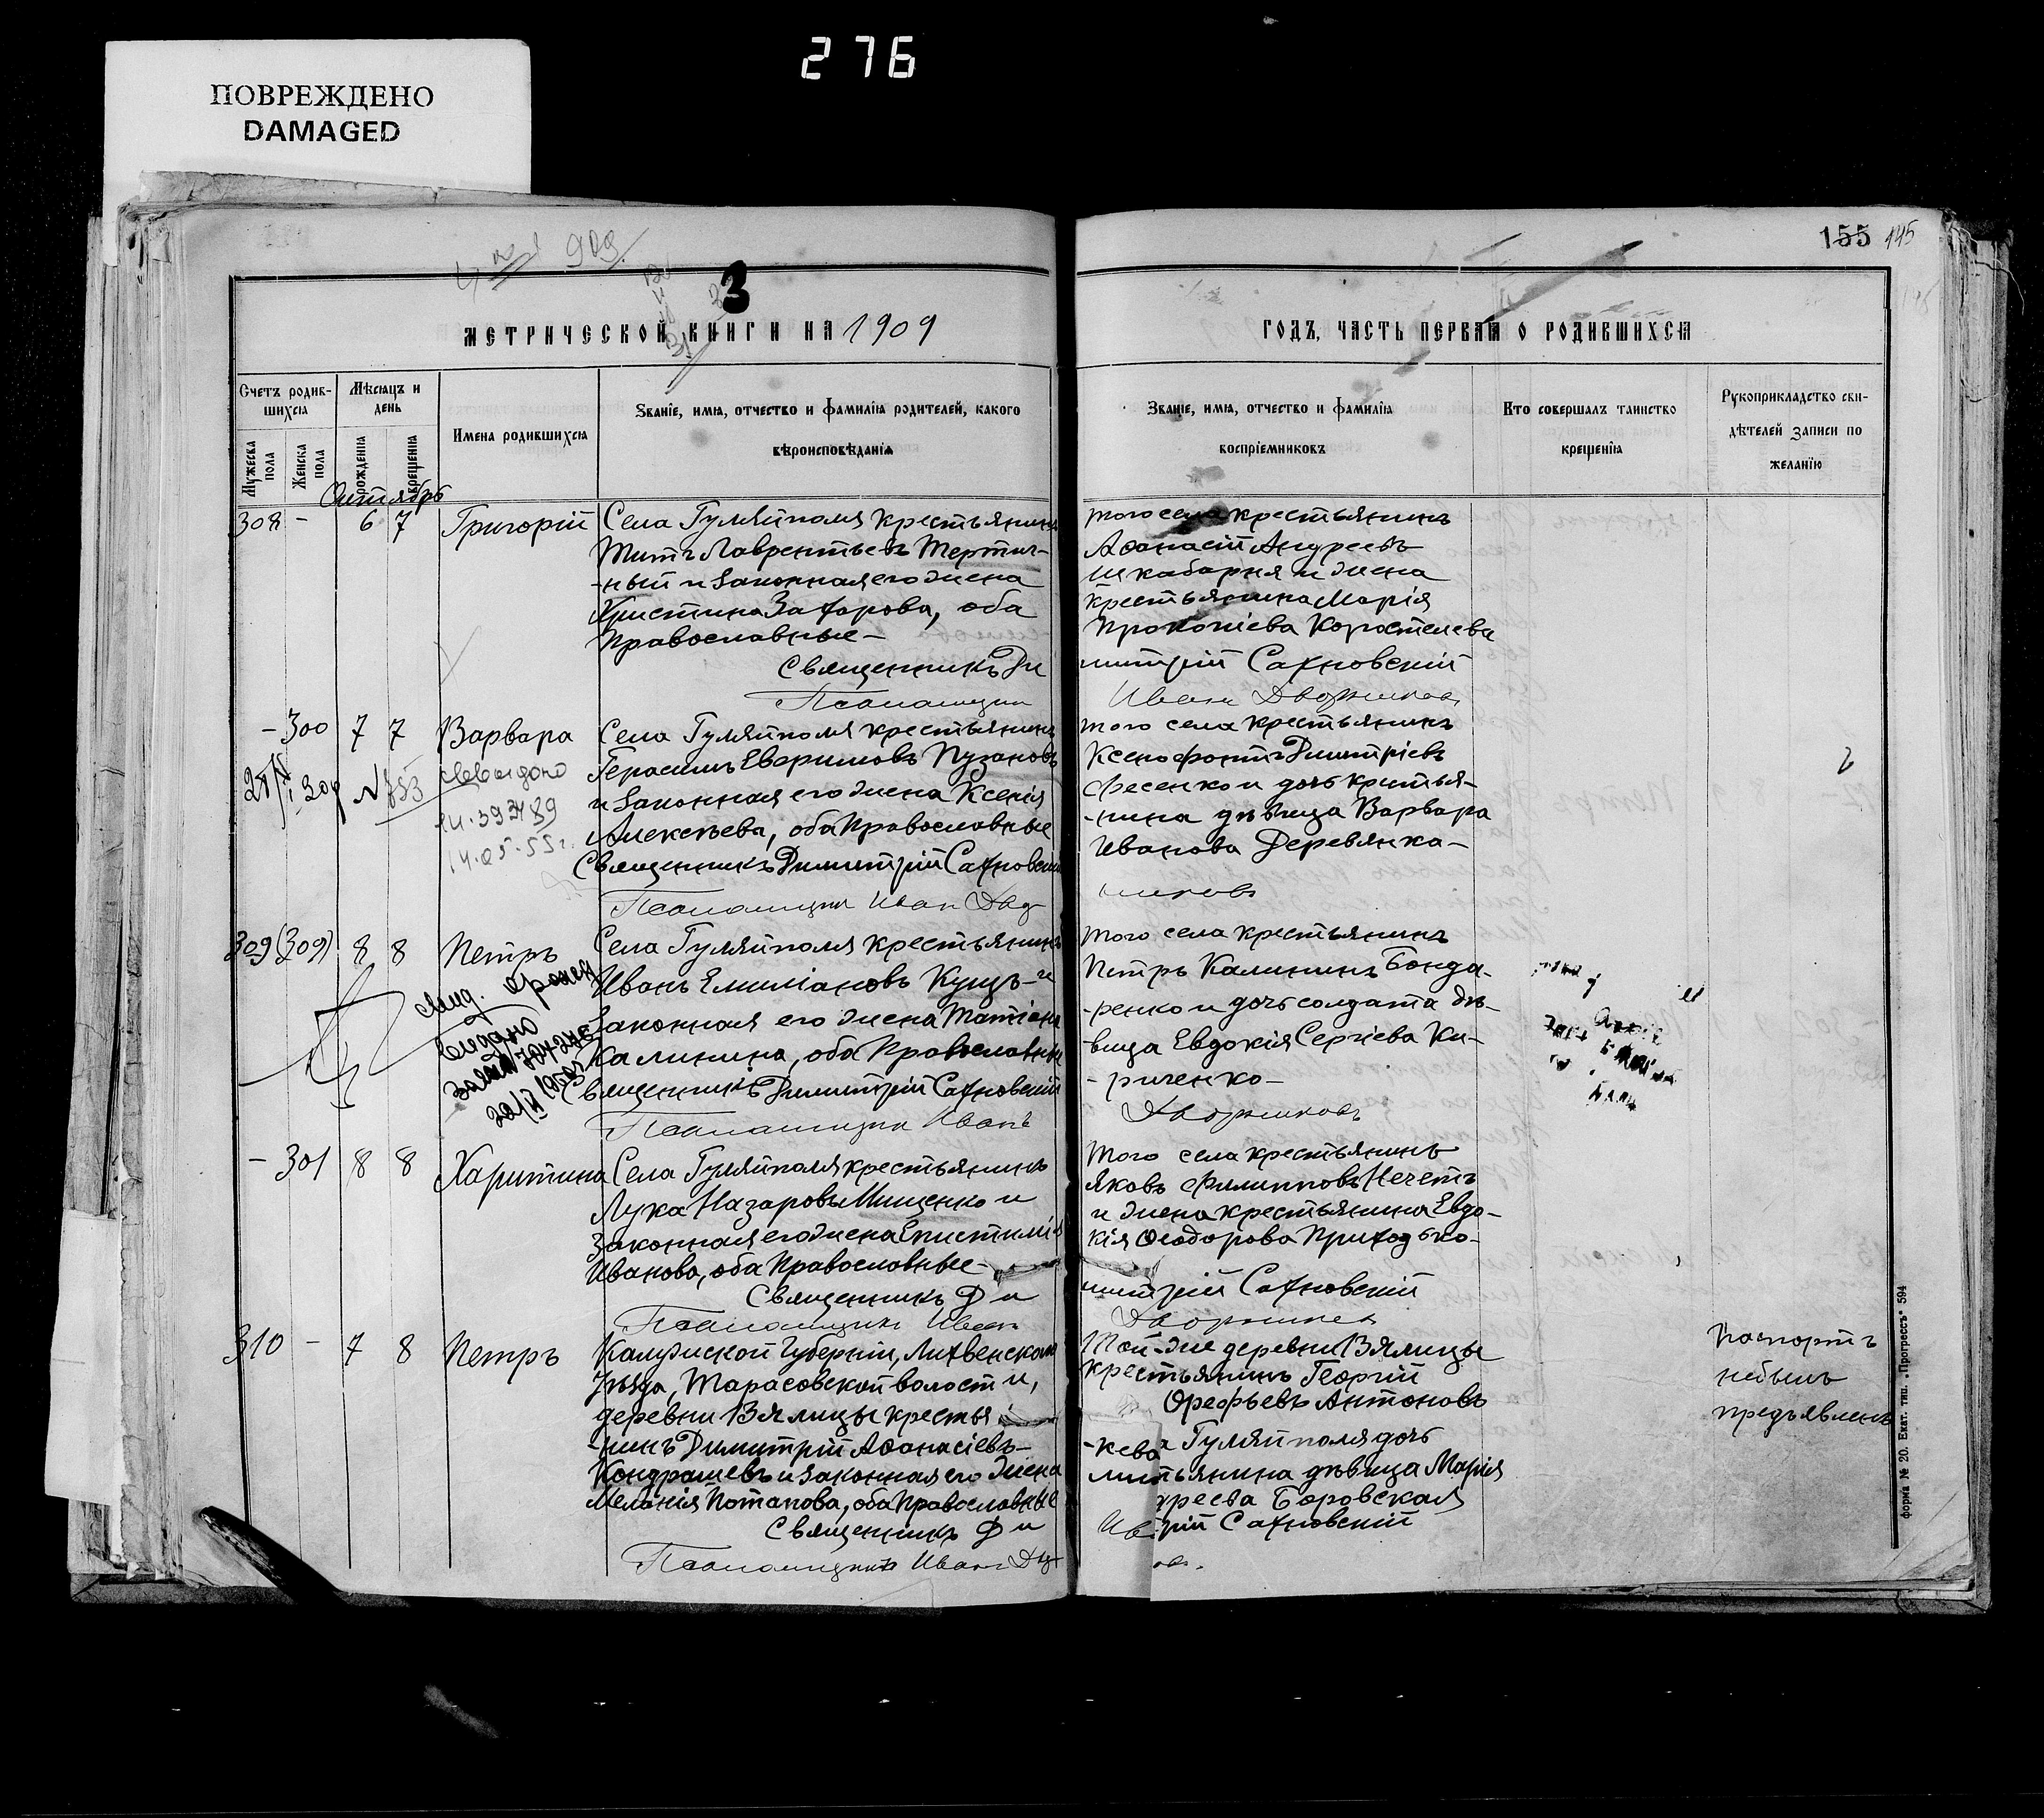 276
ПОВРЕЖДЕНО
DAMAGED
155 145
909
3
МЕТРИЧЕСКОЙ КНИГИ НА 1909
ГОДЪ, ЧАСТЬ ПЕРВАЯ О РОДИВШИХСЯ
Счетъ родив-
шихся
Мужеска пола
Женска пола
Мѣсяцъ и
день
рожденія
крещенія
Имена родившихся
Званіе, имя, отчество и фамилія родителей, какого
вѣроисповѣданія
Званіе, имя, отчество и фамилія
воспріемниковъ
Кто совершалъ таинство
крещенія
Рукоприкладство сви-
дѣтелей записи по
желанію
Октябрь
308 - 6 7 Григорій
Села Гуляйполя крестьянинъ
Титъ Лаврентьевъ Тертич-
-ный и законная его жена
Христина Захарова, оба
Православные -
Священникъ Ди
Псаломщикъ
того села крестьянинъ
Аѳанасій Андреевъ
Шкабарня и жена
крестьянина Марія
Прокопіева Коростелева
митрій Сахновскій
Иванъ Дворниковъ
- 300 7 7 Варвара
Села Гуляйполя крестьянинъ
Герасимъ Евѳимовъ Пузановъ
и законная его жена Ксенія
Алексѣева, оба Православные
Священникъ Димитрій Сахновскій
Псаломщикъ Иван Двор
того села крестьянинъ
Ксенофонтъ Димитріевъ
Фесенко и дочь крестья-
-нина дѣвица Варвара
Иванова Деревянка -
никовъ
14.05.55г.
309 (309) 8 8 Петръ
Села Гуляйполя крестьянинъ
Иванъ Емиліановъ Куцъ - и
законная его жена Татіана
Калинина, оба Православные
Священникъ Димитрій Сахновскій
Псаломщикъ Иванъ
того села крестьянинъ
Петръ Калининъ Бонда-
-ренко и дочь солдата дѣ-
вица Евдокія Сергіева Ки-
-риченко -
Дворниковъ
выдано
- 301 8 8 Харитина
Села Гуляйполя крестьянинъ
Лука Назаровъ Мищенко и
законная его жена Епистимія
Иванова, оба Православные -
Священникъ Ди
Псаломщикъ Иван
того села крестьянинъ
Яковъ Филипповъ Нечетъ
и жена крестьянина Евдо-
кія Ѳеодорова Приходько -
митрій Сахновскій
Дворниковъ
310 - 7 8 Петръ
Калужской Губерніи, Лихвенскаго
Уѣзда, Тарасовской волости,
деревни Вялицы крестья
-нинъ Димитрій Аѳанасіевъ -
Кондрашевъ и законная его жена
Меланія Потапова, оба Православные
Священникъ Ди
Псаломщикъ Иванъ Двор
Той-же деревни Вялицы
крестьянинъ Георгій
Орефьевъ Антоновъ
Гуляйполя дочь
дѣвица Марія
Боровская
Сахновскій
Паспортъ
небылъ
предъявленъ
форма № 20. Екат. тип. „Прогрессъ" 594